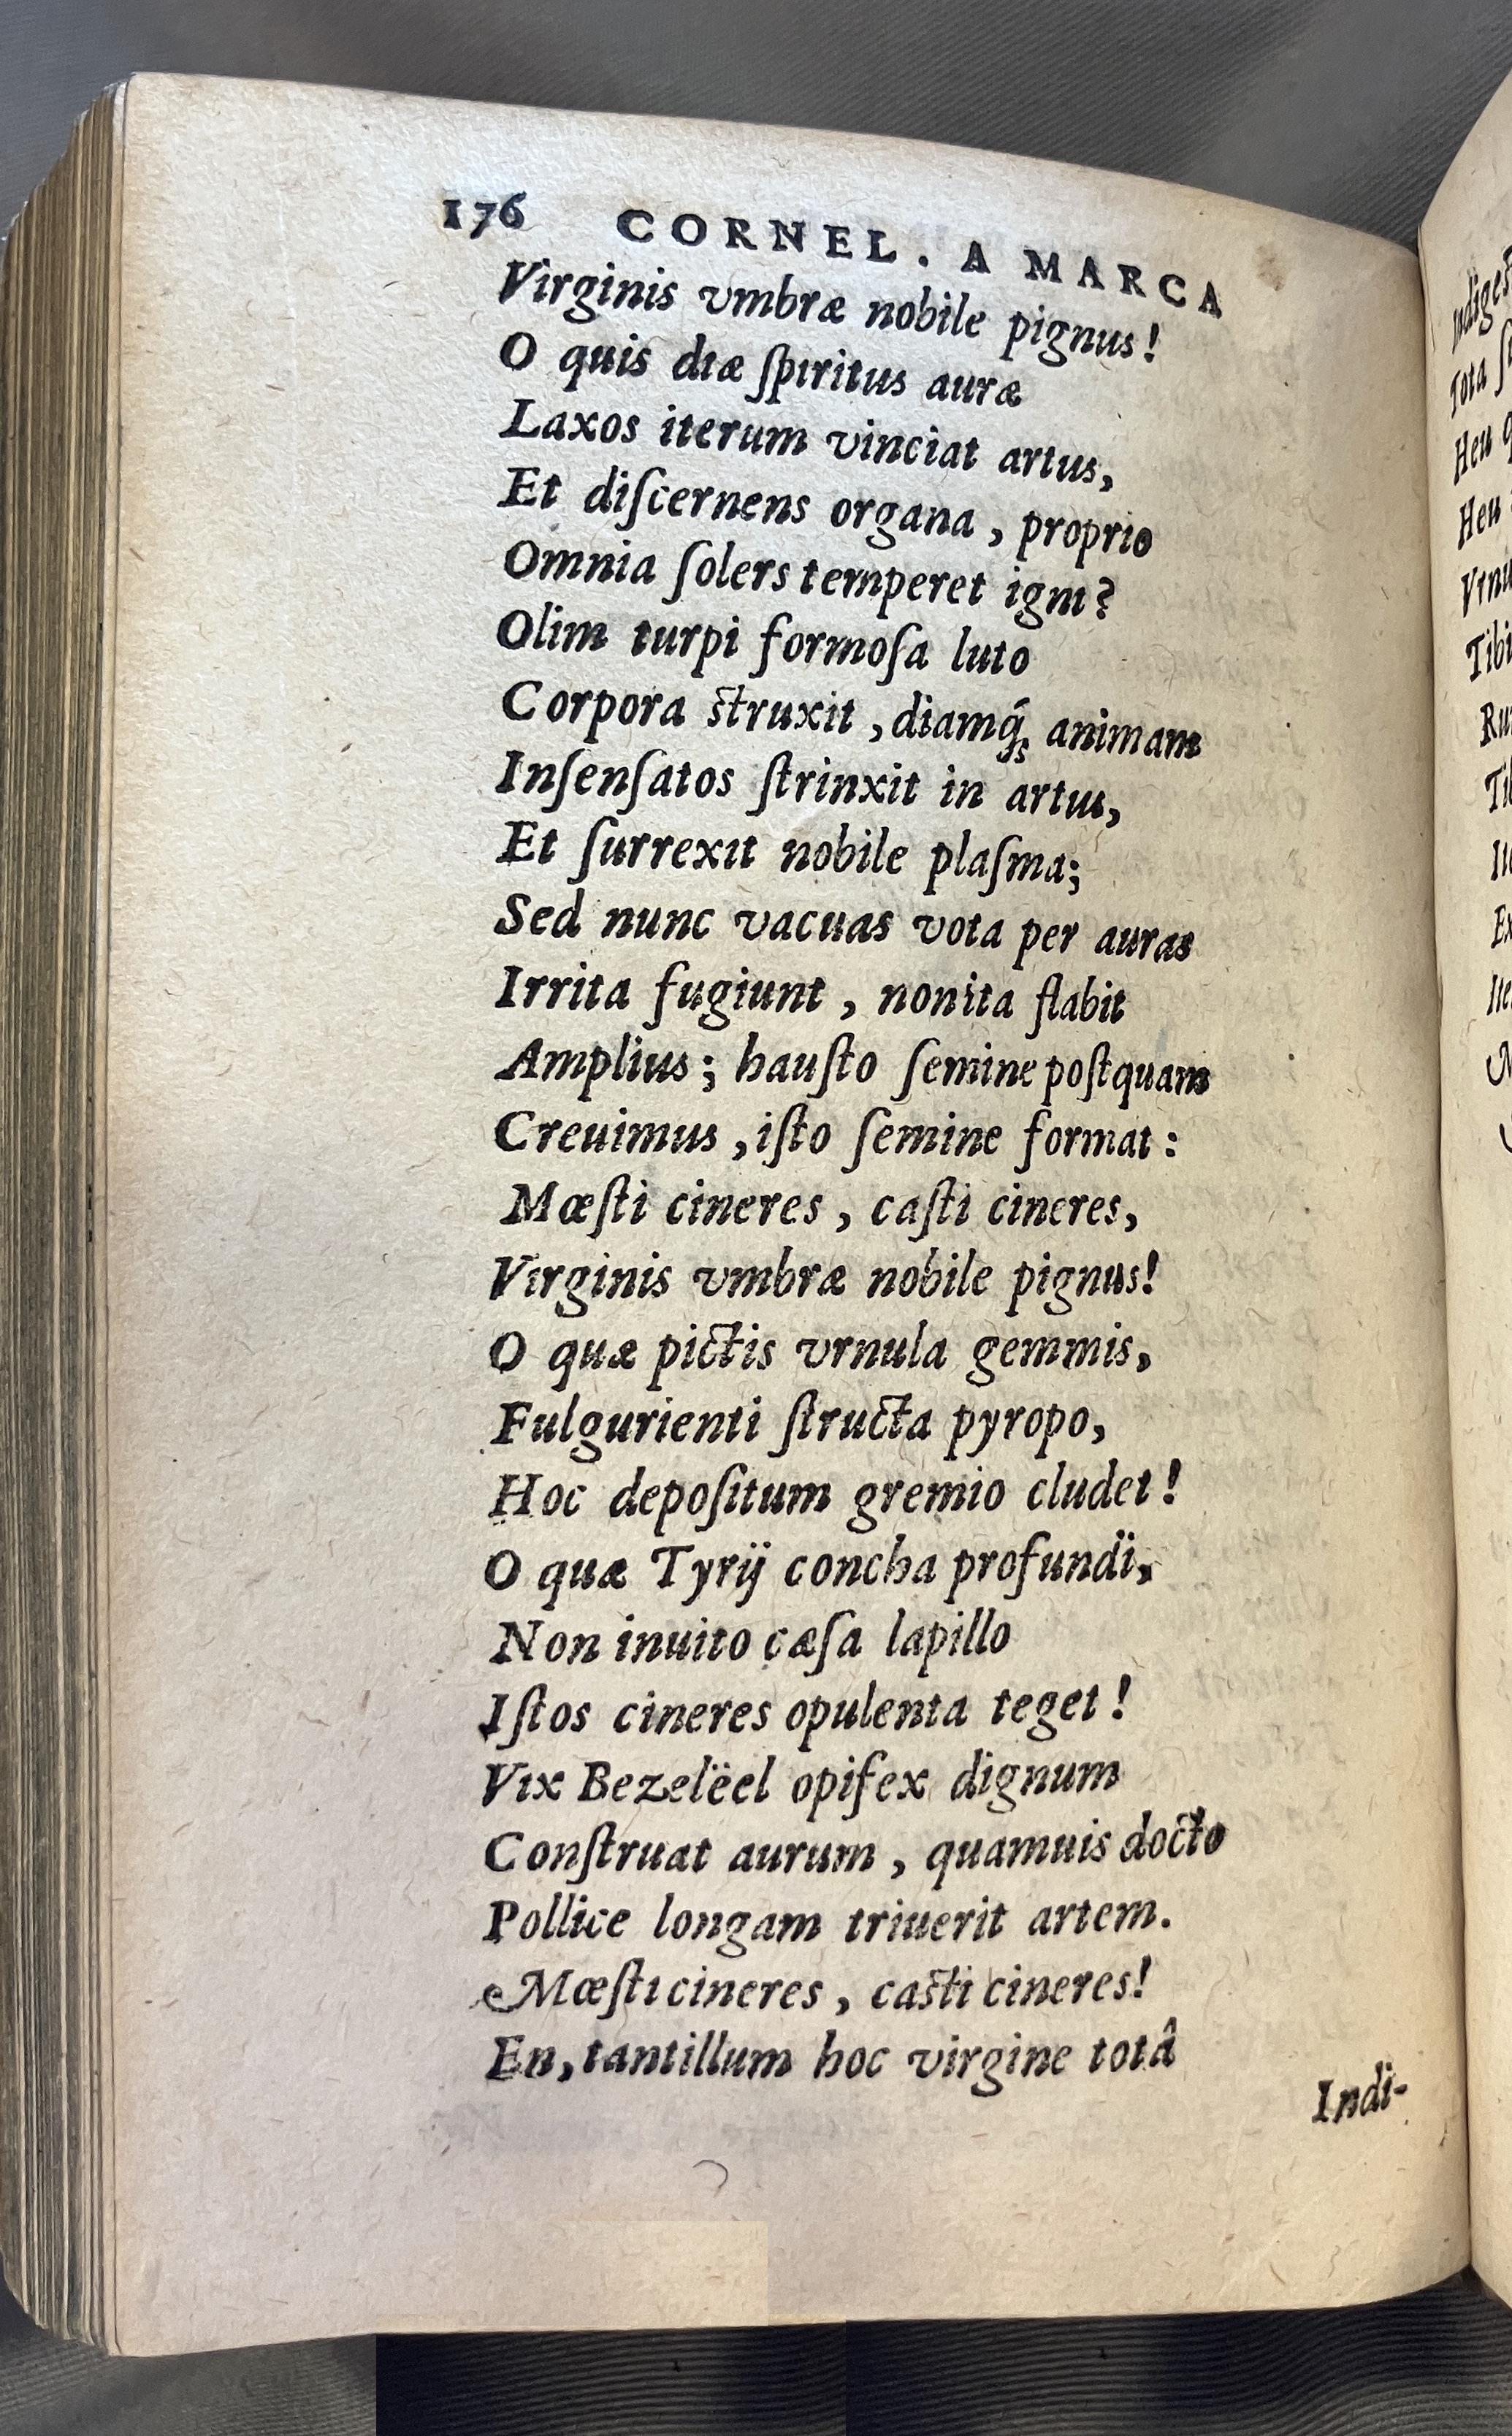 176 CORNEL. A MARCA
Virginis vmbræ nobile pignus!
O quis diæ ſpiritus auræ
Laxos iterum vinciat artus,
Et diſcernens organa, proprio
Omnia ſolers temperet igni?
Olim turpi formoſa luto
Corpora ſtruxit, diamq́ꝫ animam
Inſenſatos ſtrinxit in artus,
Et ſurrexit nobile plaſma;
Sed nunc vacuas vota per auras
Irrita fugiunt, non ita flabit
Amplius; hauſto ſemine poſtquam
Creuimus, iſto ſemine format:
Mœſti cineres, caſti cineres,
Virginis vmbræ nobile pignus!
O quæ pictis vrnula gemmis,
Fulgurienti ſtructa pyropo,
Hoc depoſitum gremio cludet!
O quæ Tyrij concha profundi,
Non inuito cæſa lapillo
Iſtos cineres opulenta teget!
Vix Bezelëel opifex dignum
Conſtruat aurum, quamuis docto
Pollice longam triuerit artem.
Mœſti cineres, caſti cineres!
En, tantillum hoc virgine totâ
Indi-
Tota
Heu
Heu